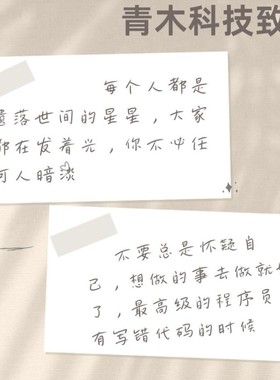 青木科技致
每个人都是
遗落世间的星星，大家
都在发着光，你不必任
何人暗淡
不要总是怀疑自
己，想做的事去做就
了，最高级的程序员
有写错代码的时候